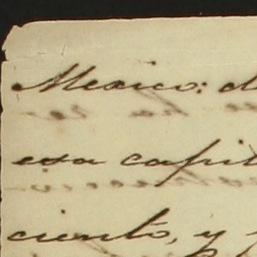 Mexico: d
esa capit
ciento, y